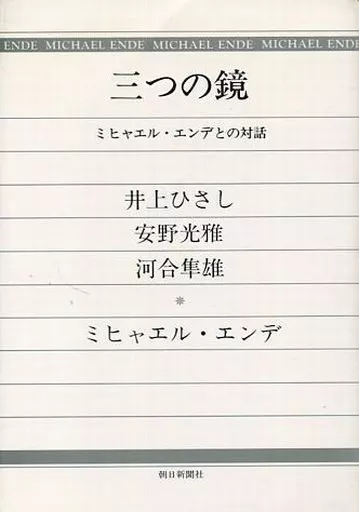 ENDE MICHAEL ENDE MICHAEL ENDE MICHAEL ENDE
三つの鏡
ミヒャエル・エンデとの対話
井上ひさし
安野光雅
河合隼雄
＊
ミヒャエル・エンデ
朝日新聞社